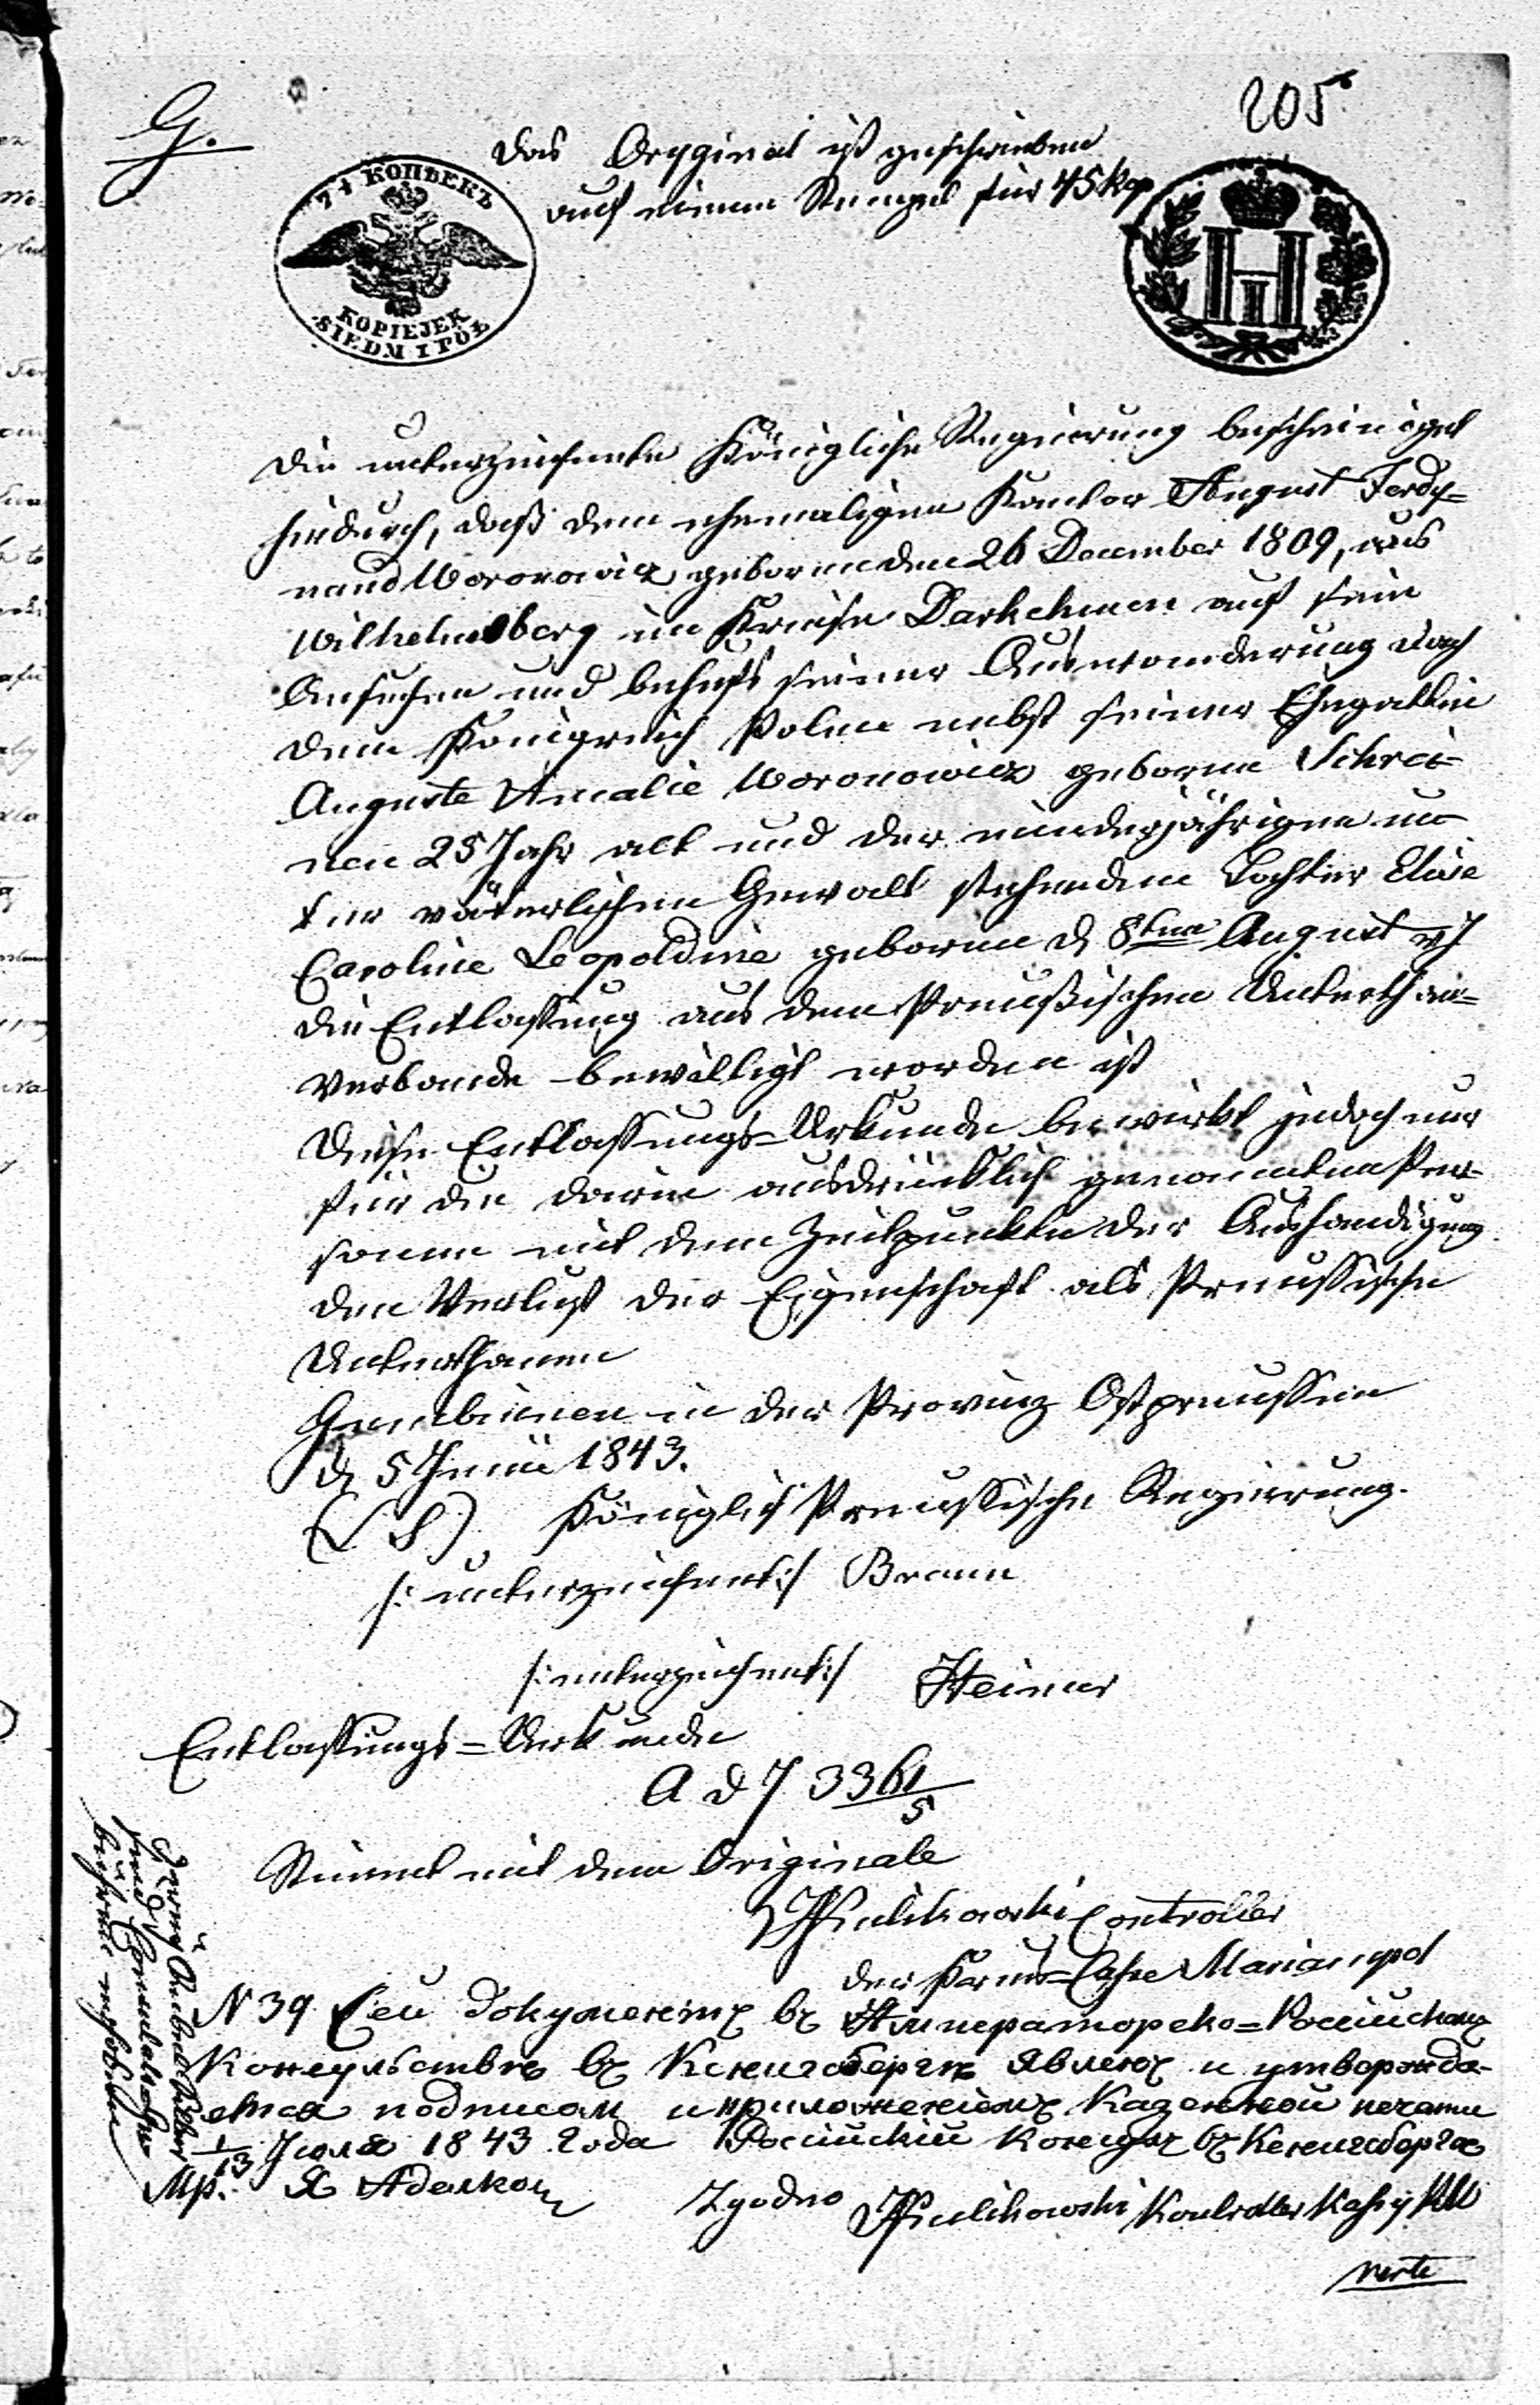 G.
205
Das Oryginal ist geschrieben
auf einem Stempel für 45 kop
7½ КОПѢЕКЪ
KOPIEJEK
SIEDM I PÓŁ
Die unterzeichnete Königliche Regierung bescheiniget
hiedurch, daß dem ehemaligen Kantor August Ferdy=
nand Woronowicz geboren den 26 December 1809, aus
Wilhelmsberg im Kreise Darkehmen auf sein
Ansuchen und behufs seiner Auswanderung nach
dem Königreich Polen nebst seiner Ehegattin
Auguste Amalie Woronowicz geborne Schrei=
nen 25 Jahr alt und der minderjährigen un
ter väterlichen Gewalt stehenden Tochter Elise
Caroline Leopoldine geboren d 8ten August v J
die Entlassung aus dem Preußischen Unterthan=
Verbande bewilligt worden ist
Diese Entlassungs=Urkunde bewirkt jedoch nur
für die darin ausdrücklich genannten Per=
sonen mit dem Zeitpunkte der Aushandigung
den Verlust der Eigenschaft als Preussische
Unterthanen
Gumbinnen in der Provinz Ostpreussen
d 5 Juni 1843.
(L S) Königlich Preussische Regierung.
/: unterzeichnet :/ Braun
/: unterzeichnet :/ Heimer
Entlassungs=Urkunde
A d J 3361/5
Stimmt mit dem Originale
Kulikowski Controller
der Kreis=Casse Mariampol
N 39 Сей документъ въ Императорско=Россійскомъ
Консульствѣ въ Кенигсбергѣ явленъ и утвержда-
ется подписью и приложеніемъ казенной печати
1/13 Іюля 1843 года Россійскій Консулъ въ Кенигсбергѣ
Мр. Адельсонъ
Zgodno Kulikowski Kontroller Kassy PM
verte